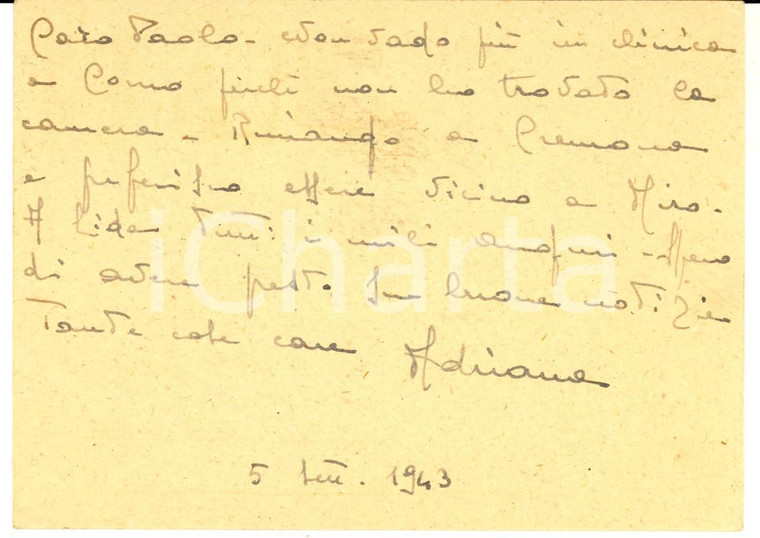 Caro Paolo - Non vado più in clinica
a Como perché non ho trovato la
camera - Rimango a Cremona
e preferisco essere vicino a Miro -
A Lida tutti i miei auguri - spero
di avere presto sue buone notizie
Tante cose care Adriana
5 Sett. 1943
iCharta